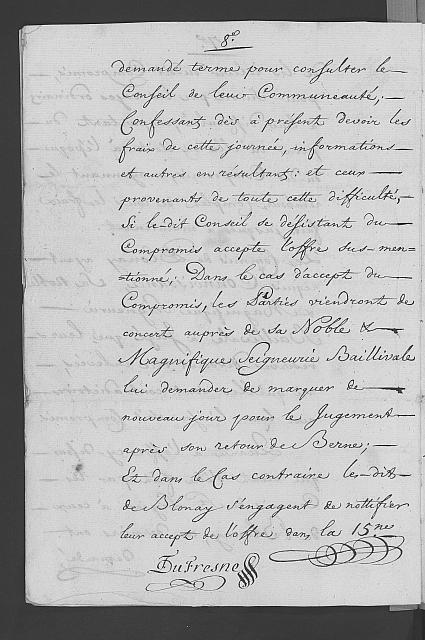 8.º
demandé terme pour consulter le
Conseil de leur Communeauté;
Confessant dès à présent devoir les
frais de cette journée, informations
et autres en résultant: et ceux
provenants de toute cette difficulté,
Si le-dit Conseil se désistant du
Compromis accepte l'offre sus-men-
-tionnée; Dans le cas d'accept du
Compromis, les Parties viendront de
concert auprès de sa Noble &
Magnifique Seigneurie Baillivale
lui demander de marquer de
nouveau jour pour le Jugement
après son retour de Berne;
Et dans le Cas contraire les-dits
de Blonay s'engagent de nottifier
leur accept de l'offre dans la 15.ne
DuFresne